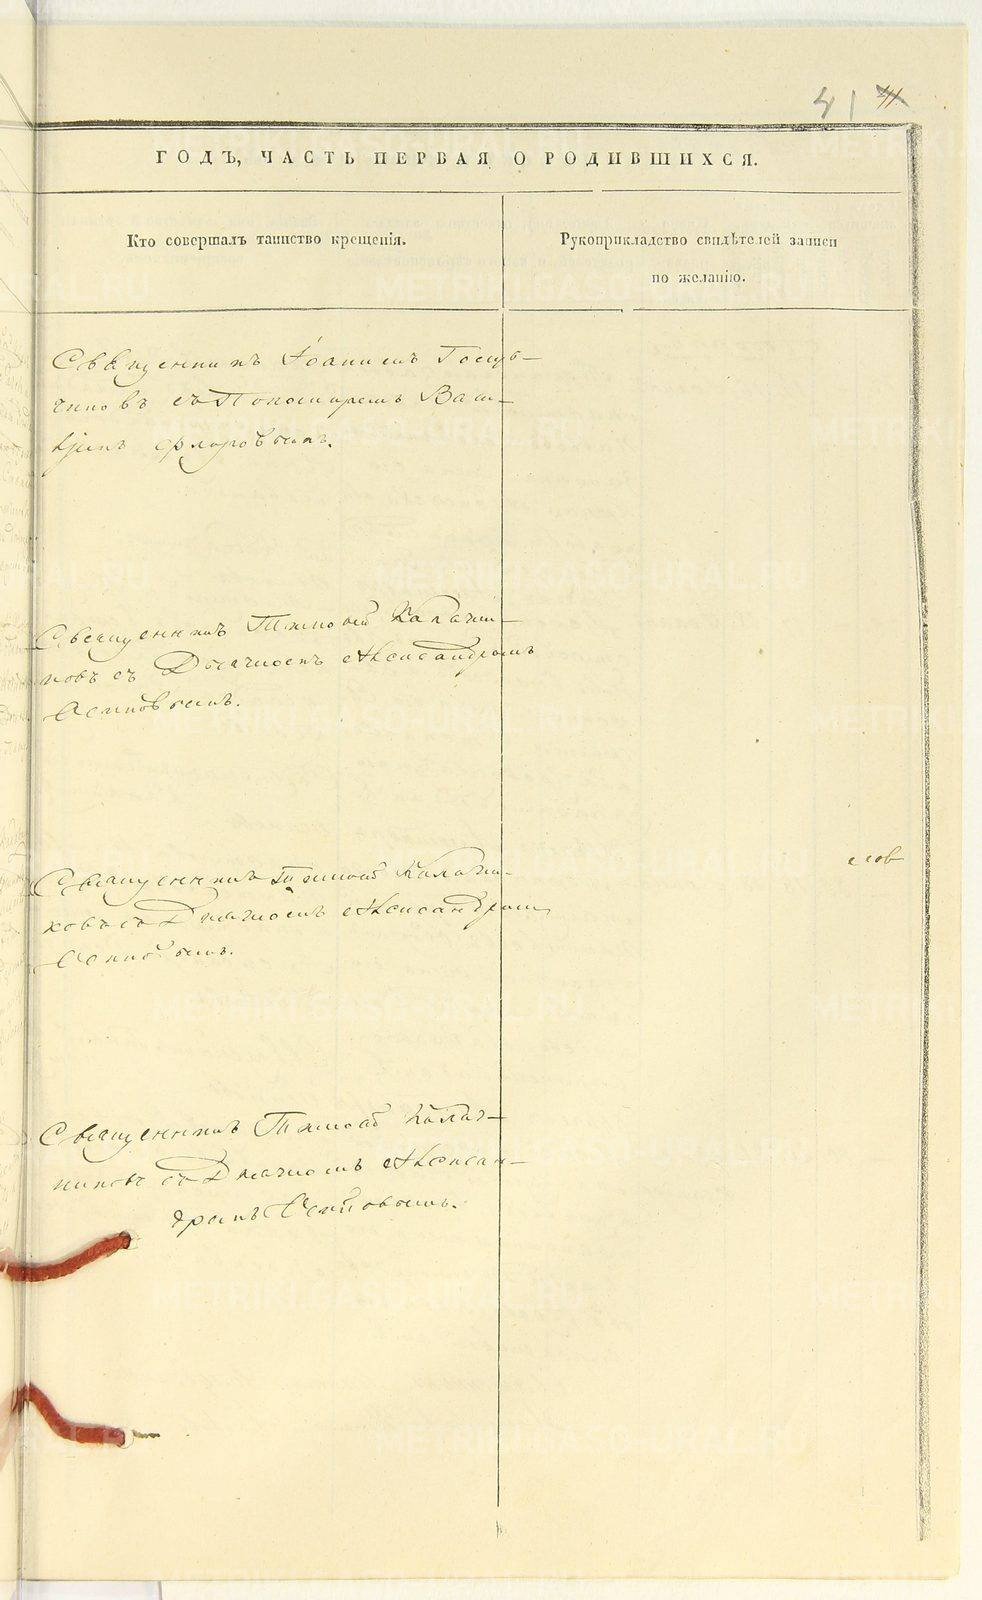 41
ГОДЪ, ЧАСТЬ ПЕРВАЯ О РОДИВШИХСЯ.
Кто совершалъ таинство крещенія.
Рукоприкладство свидѣтелей записи
по желанію.
Священникъ Іоаннъ
съ Пономаремъ
Флоровымъ.
Священникъ Тимоѳей Калачни-
ковъ съ Дьячкомъ Александромъ
Осиповымъ.
Священникъ Тимоѳей Калачни-
ковъ съ Дьячкомъ Александромъ
Осиповымъ.
Священникъ Тимоѳей Калач-
никовъ съ Дьячкомъ Алексан-
дромъ Осиповымъ.
METRIKI.GASO-URAL.RU